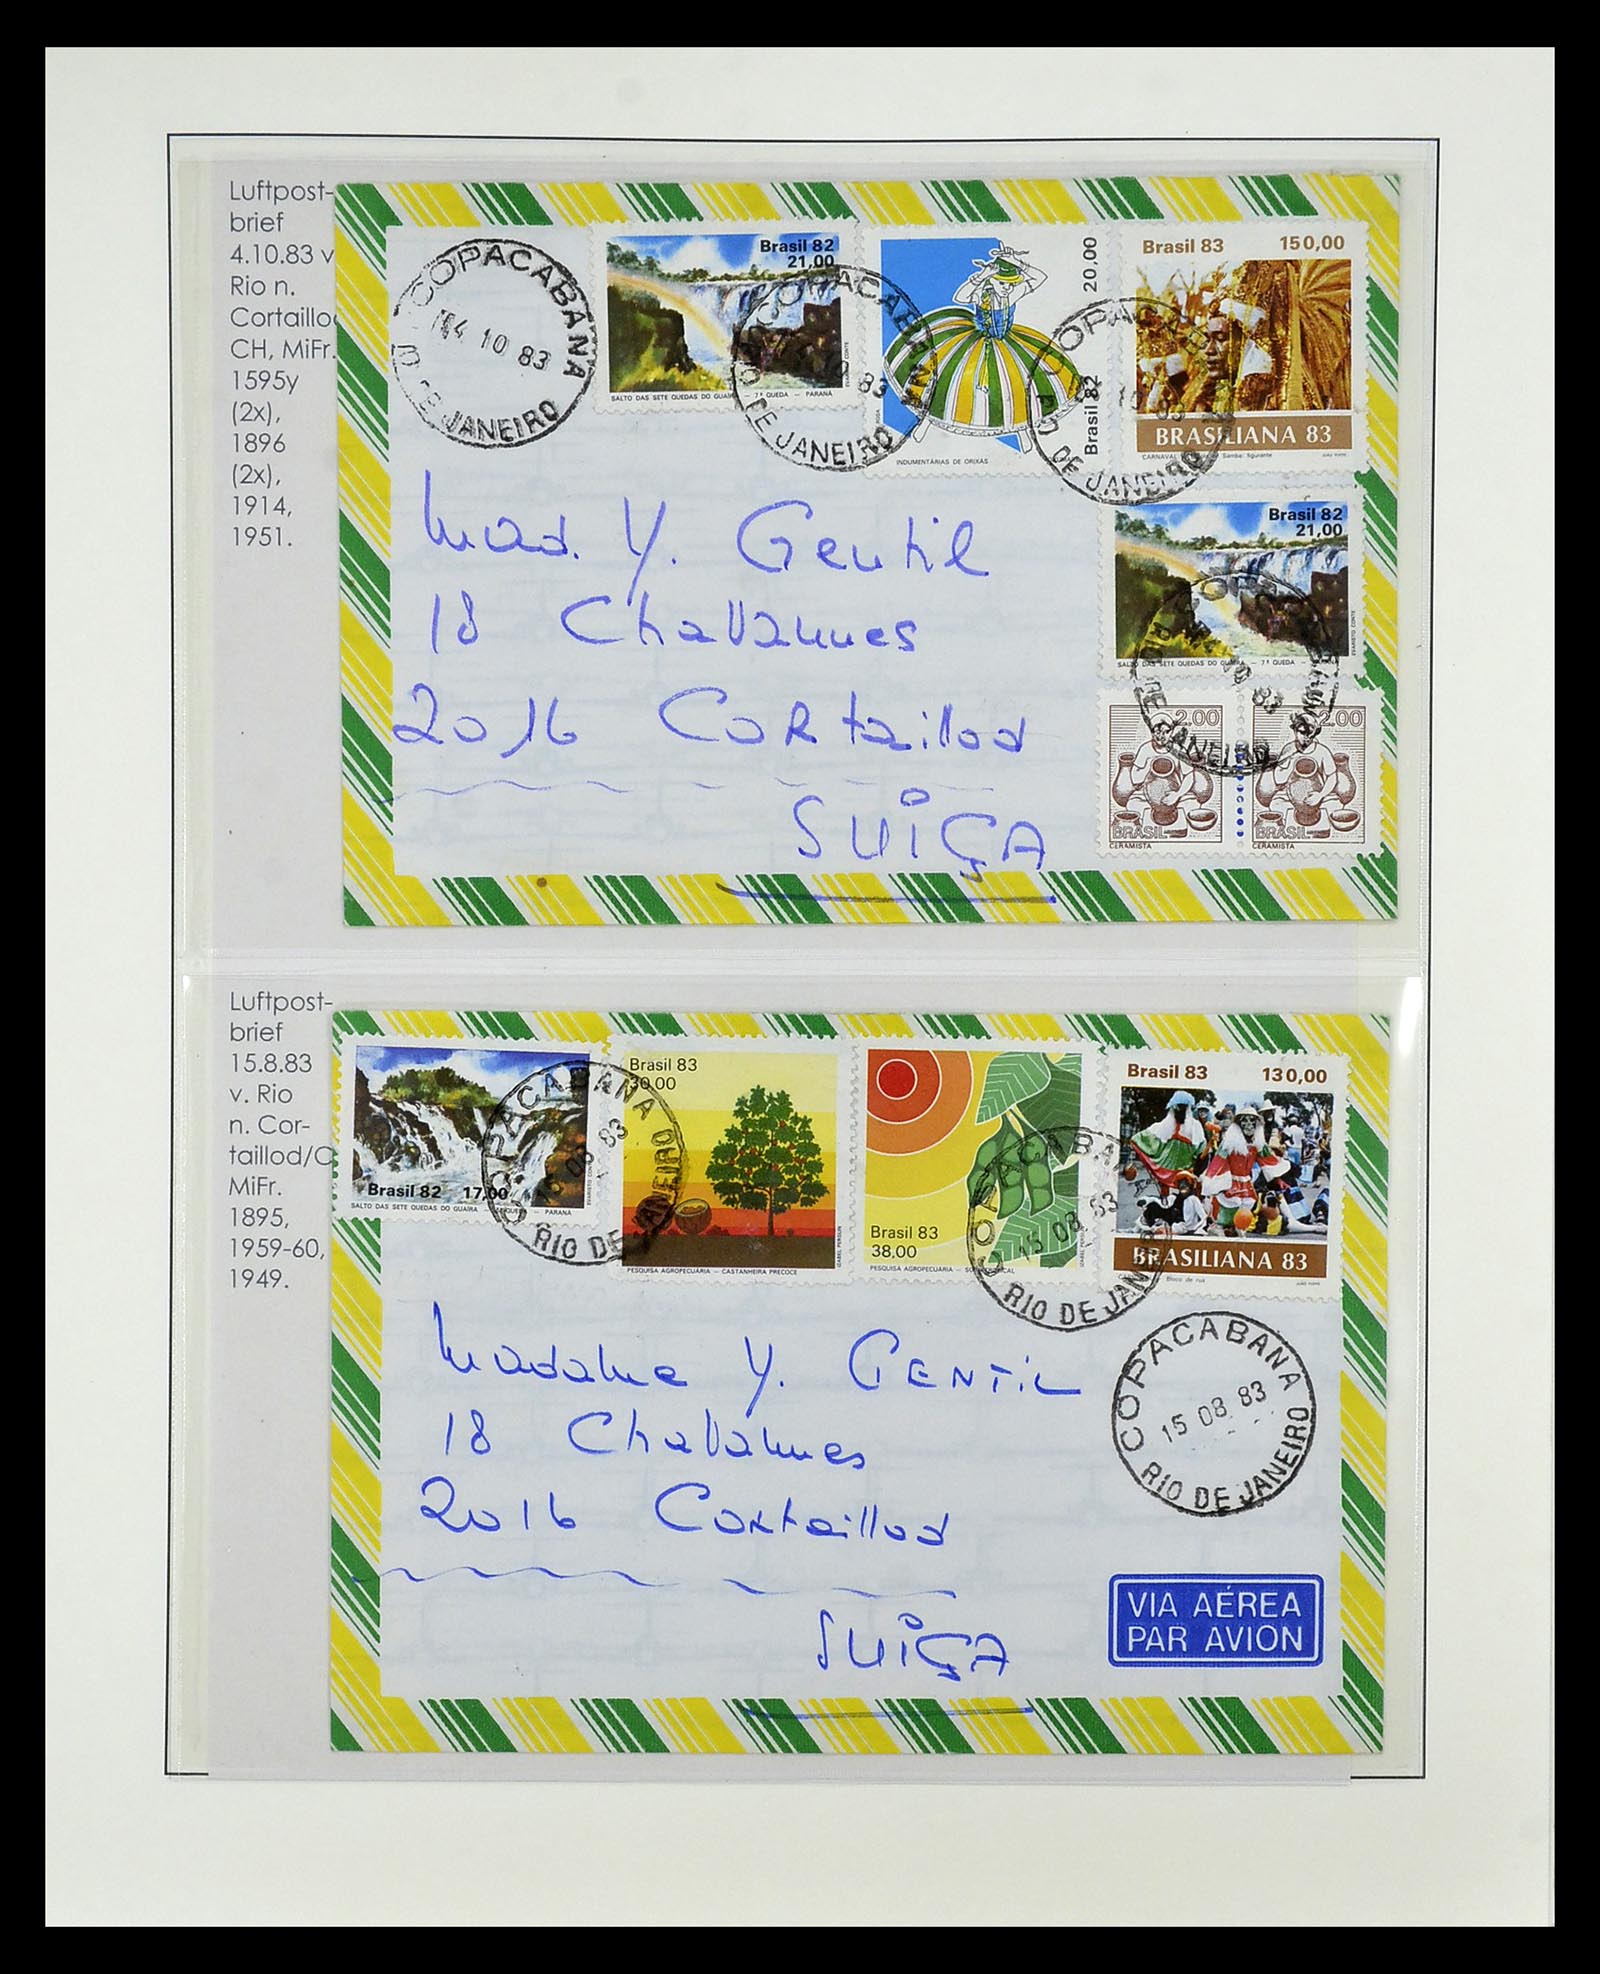 Luftpost-
brief
4.10.83 v
Rio n.
Cortaillo
CH, MiFr.
1595y
(2x),
1896
(2x),
1914,
1951.
COPACABANA
04 10 83
RIO DE JANEIRO
Brasil 82
21,00
SALTO DAS SETE QUEDAS DO GUAIRA — 7ª QUEDA — PARANÁ
EVARISTO CONTE
20,00
Brasil 82
INDUMENTÁRIAS DE ORIXÁS
Brasil 83 150,00
BRASILIANA 83
CARNAVAL Samba: figurante
Brasil 82
21,00
SALTO DAS SETE QUEDAS DO GUAIRA — 7ª QUEDA
EVARISTO CONTE
2.00
BRASIL
CERAMISTA
2.00
BRASIL
CERAMISTA
Mad. Y. Gentil
18 Chavannes
2016 CORtaillod
SUIÇA
Luftpost-
brief
15.8.83
v. Rio
n. Cor-
taillod/C
MiFr.
1895,
1959-60,
1949.
Brasil 82 17,00
SALTO DAS SETE QUEDAS DO GUAIRA — QUEDA — PARANÁ
COPACABANA
15 08 83
RIO DE JANEIRO
Brasil 83
30,00
PESQUISA AGROPECUÁRIA - CASTANHEIRA PRECOCE
Brasil 83
38,00
PESQUISA AGROPECUÁRIA -
COPACABANA
15 08 83
RIO DE JANEIRO
Brasil 83 130,00
BRASILIANA 83
Bloco de rua
COPACABANA
15 08 83
RIO DE JANEIRO
Madame Y. GENTIL
18 Chavannes
2016 Cortaillod
SUIÇA
VIA AÉREA
PAR AVION